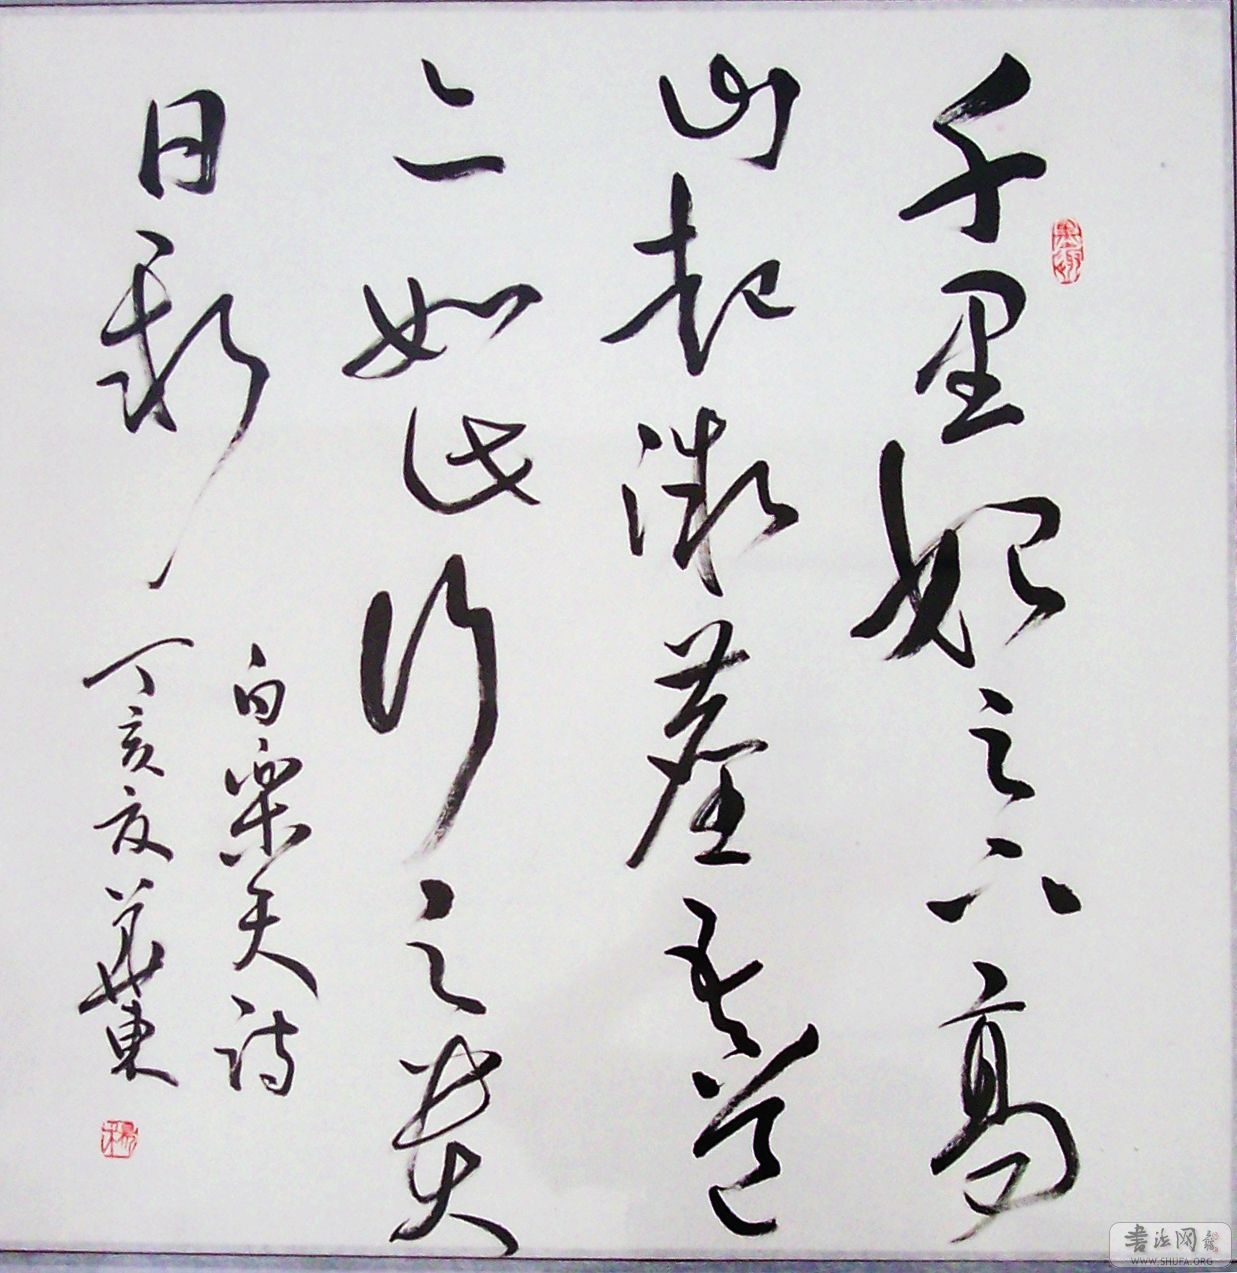 千里始之下高
山起微塵吾道
亦如此行之贵
日新
白乐天诗
丁亥夏華東
書法网
WWW.SHUFA.ORG